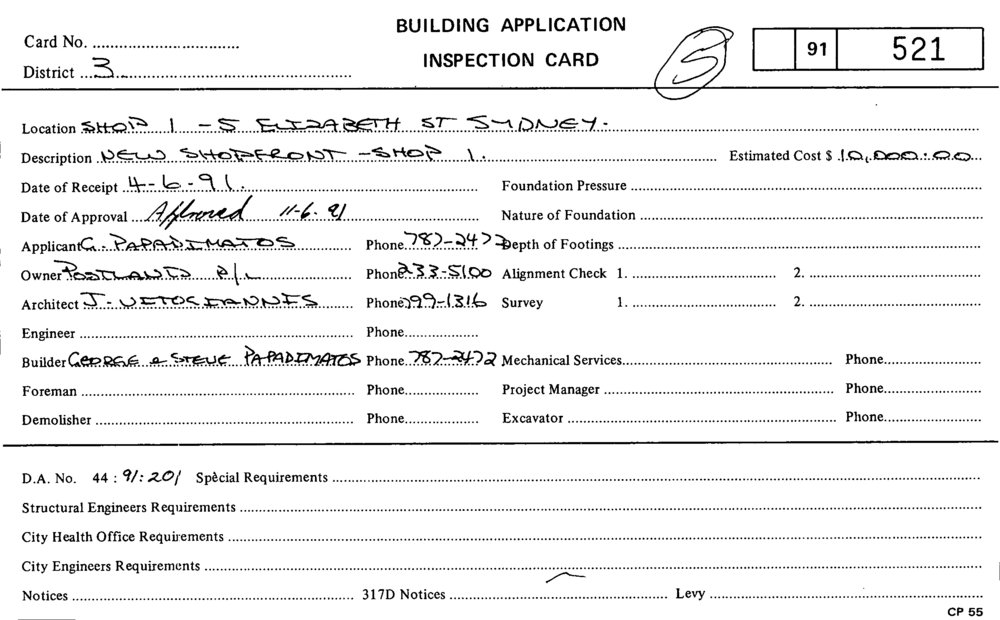 BUILDING APPLICATION
INSPECTION CARD
Card No.
District 3
3
91 521
Location SHOP 1 - 5 ELIZABETH ST SYDNEY.
Description NEW SHOPFRONT - SHOP 1. Estimated Cost $ 10,000:00
Date of Receipt 4-6-91. Foundation Pressure
Date of Approval Approved 11-6-91 Nature of Foundation
Applicant G. PAPADIMATOS Phone 787-2472 Depth of Footings
Owner POSTLAND P/L Phone 233-5100 Alignment Check 1. 2.
Architect J. Phone 799-1316 Survey 1. 2.
Engineer Phone
Builder GEORGE & STEVE PAPADIMATOS Phone 787-2472 Mechanical Services Phone
Foreman Phone Project Manager Phone
Demolisher Phone Excavator Phone
D.A. No. 44 : 91:201 Special Requirements
Structural Engineers Requirements
City Health Office Requirements
City Engineers Requirements
Notices 317D Notices Levy
CP 55